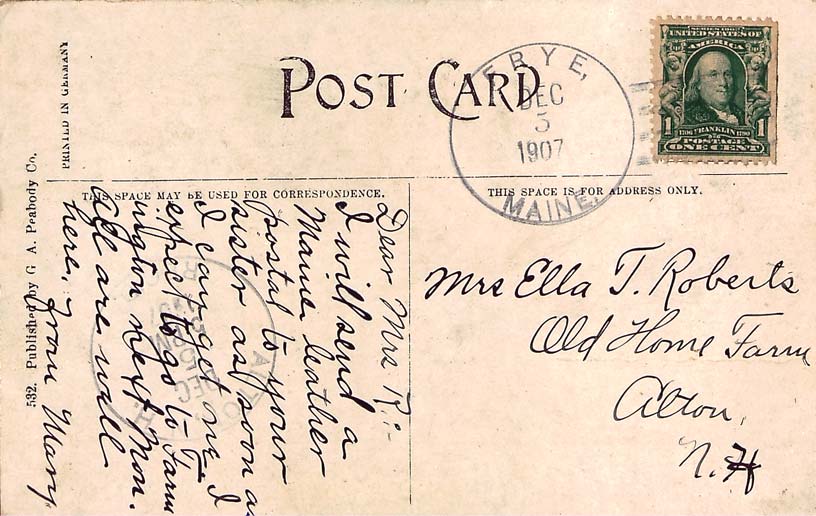 POST CARD
FRYE,
DEC
5
1907
MAINE.
SERIES 1902
UNITED STATES OF
AMERICA
1706 FRANKLIN 1790
1 1
POSTAGE
ONE CENT
PRINTED IN GERMANY
532. Published by G. A. Peabody Co.
THIS SPACE MAY BE USED FOR CORRESPONDENCE.
THIS SPACE IS FOR ADDRESS ONLY.
Dear Mrs R.:-
I will send a
Maine leather
postal to your
sister as soon as
I can get one. I
expect to go to Farm
ington next Mon.
All are well
here, From Mary.
Mrs Ella T. Roberts
Old Home Farm
Alton,
N.H
ALTON
DEC